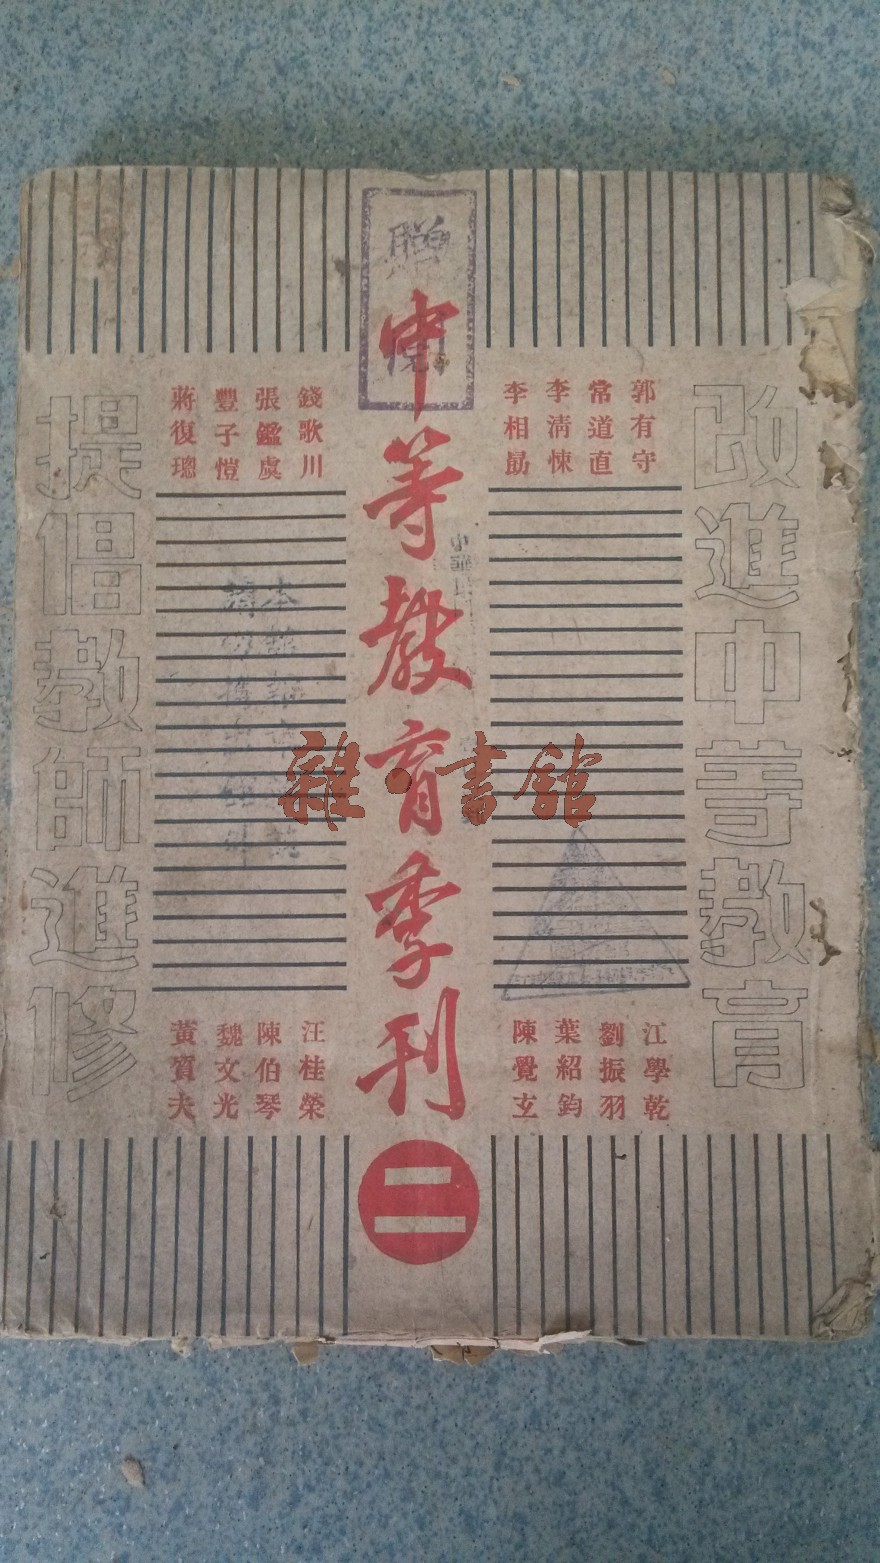 贈閱
中等教育季刊
二
改進中等教育
提倡教師進修
郭有守
常道直
李清悚
李相勗
錢歌川
張鑑虞
豐子愷
蔣復璁
江學乾
劉振羽
葉紹鈞
陳覺玄
汪桂榮
陳伯琴
魏文光
黃質夫
雜·書館